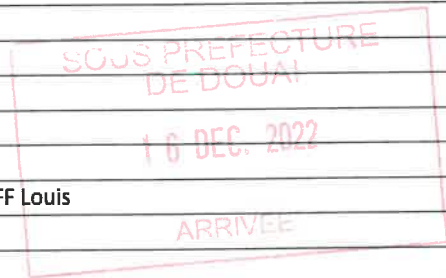 SOUS PREFECTURE
DE DOUAI
16 DEC. 2022
FF Louis
ARRIVEE